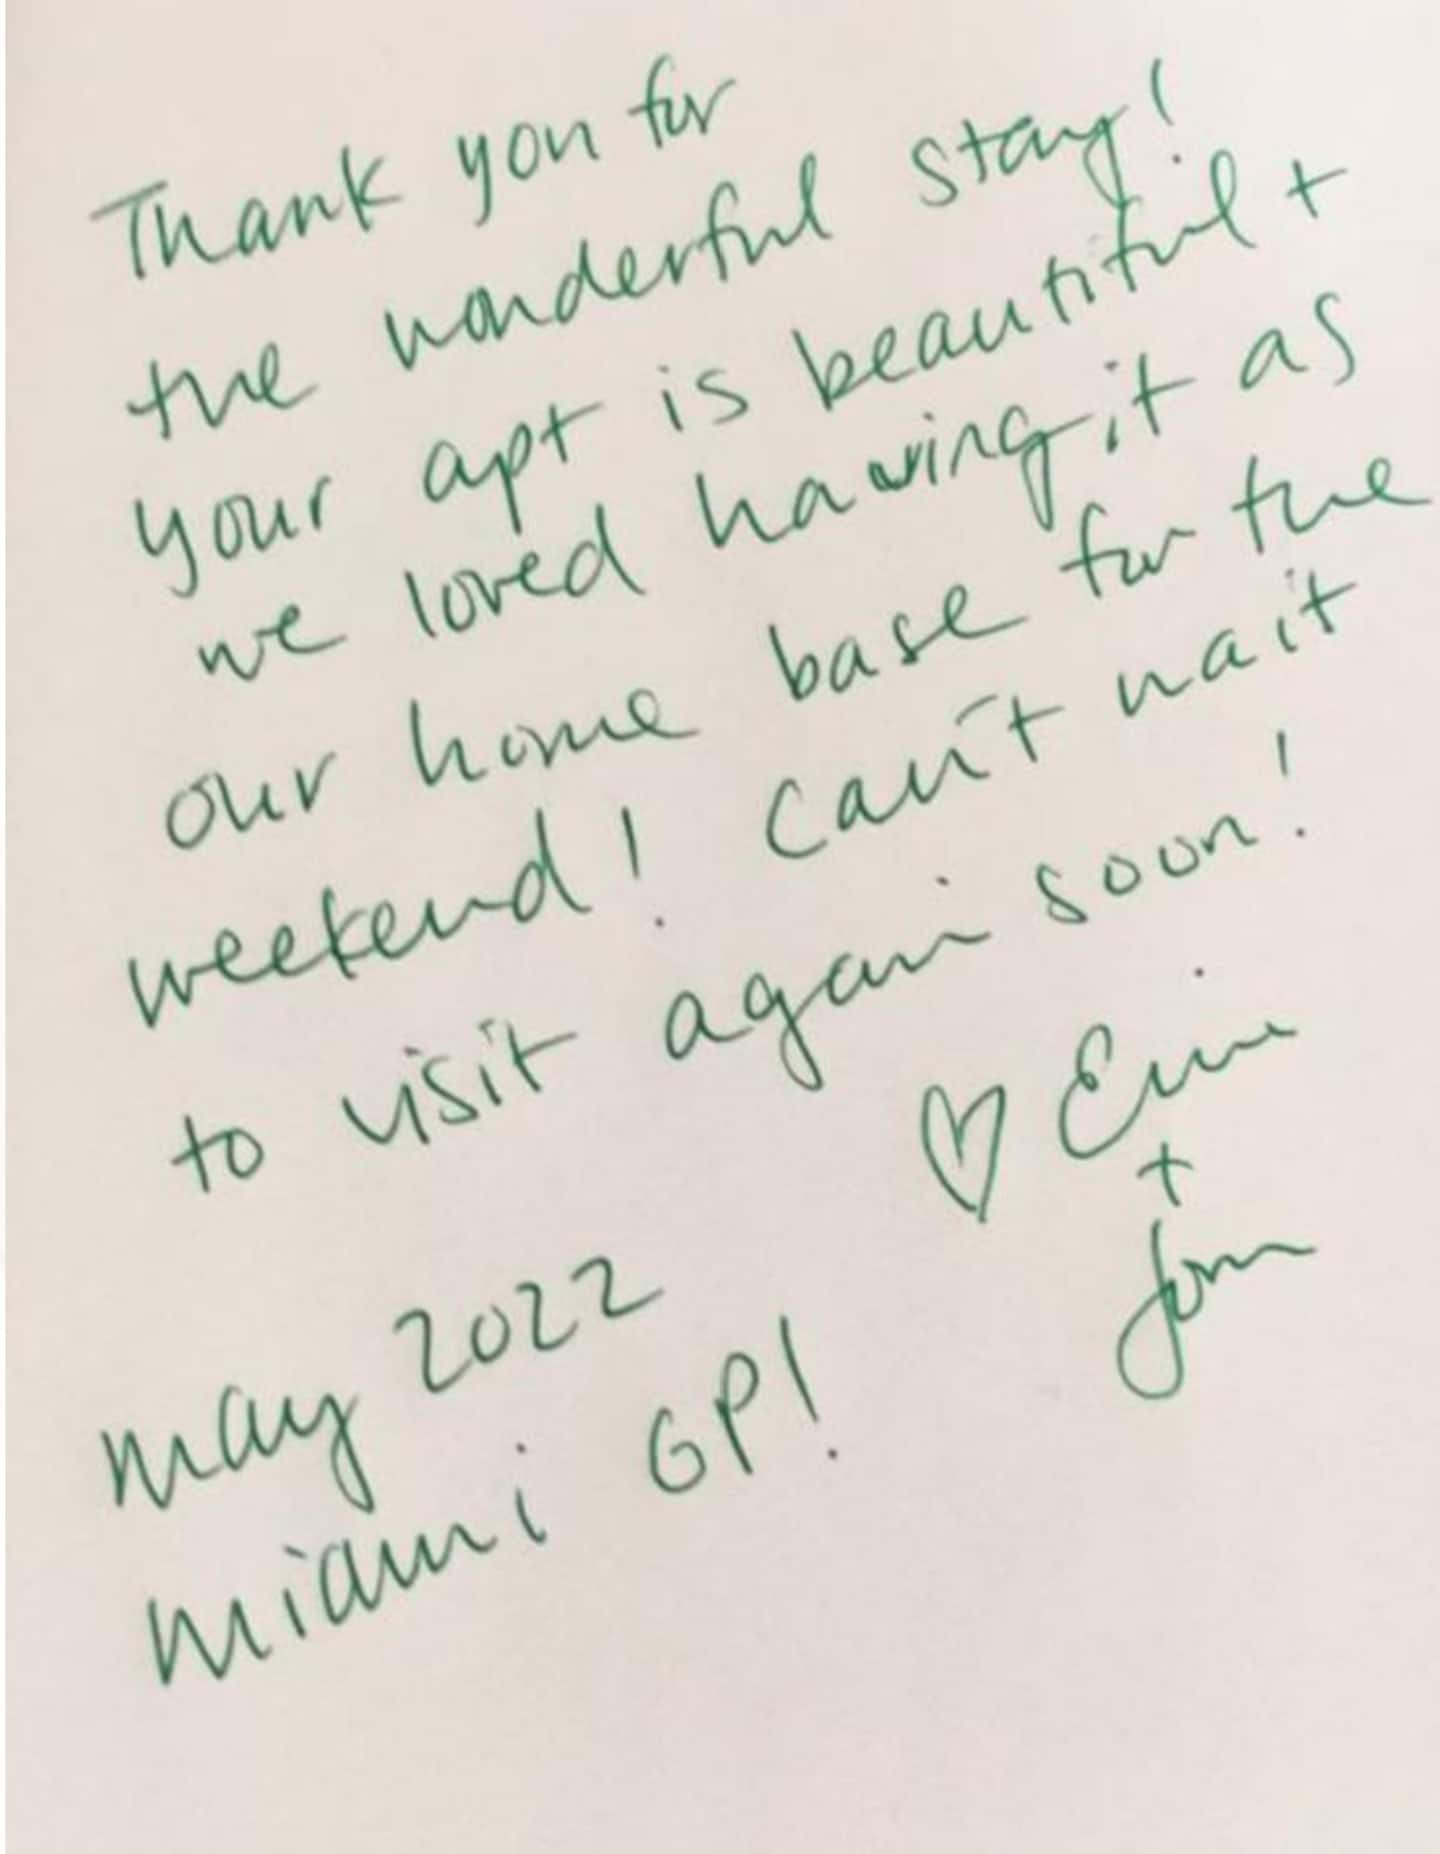 Thank you for
the wonderful stay!
your apt is beautiful +
we loved having it as
our home base for the
weekend! Can't wait
to visit again soon!
♡ Erin
+
Jon
May 2022
Miami GP!